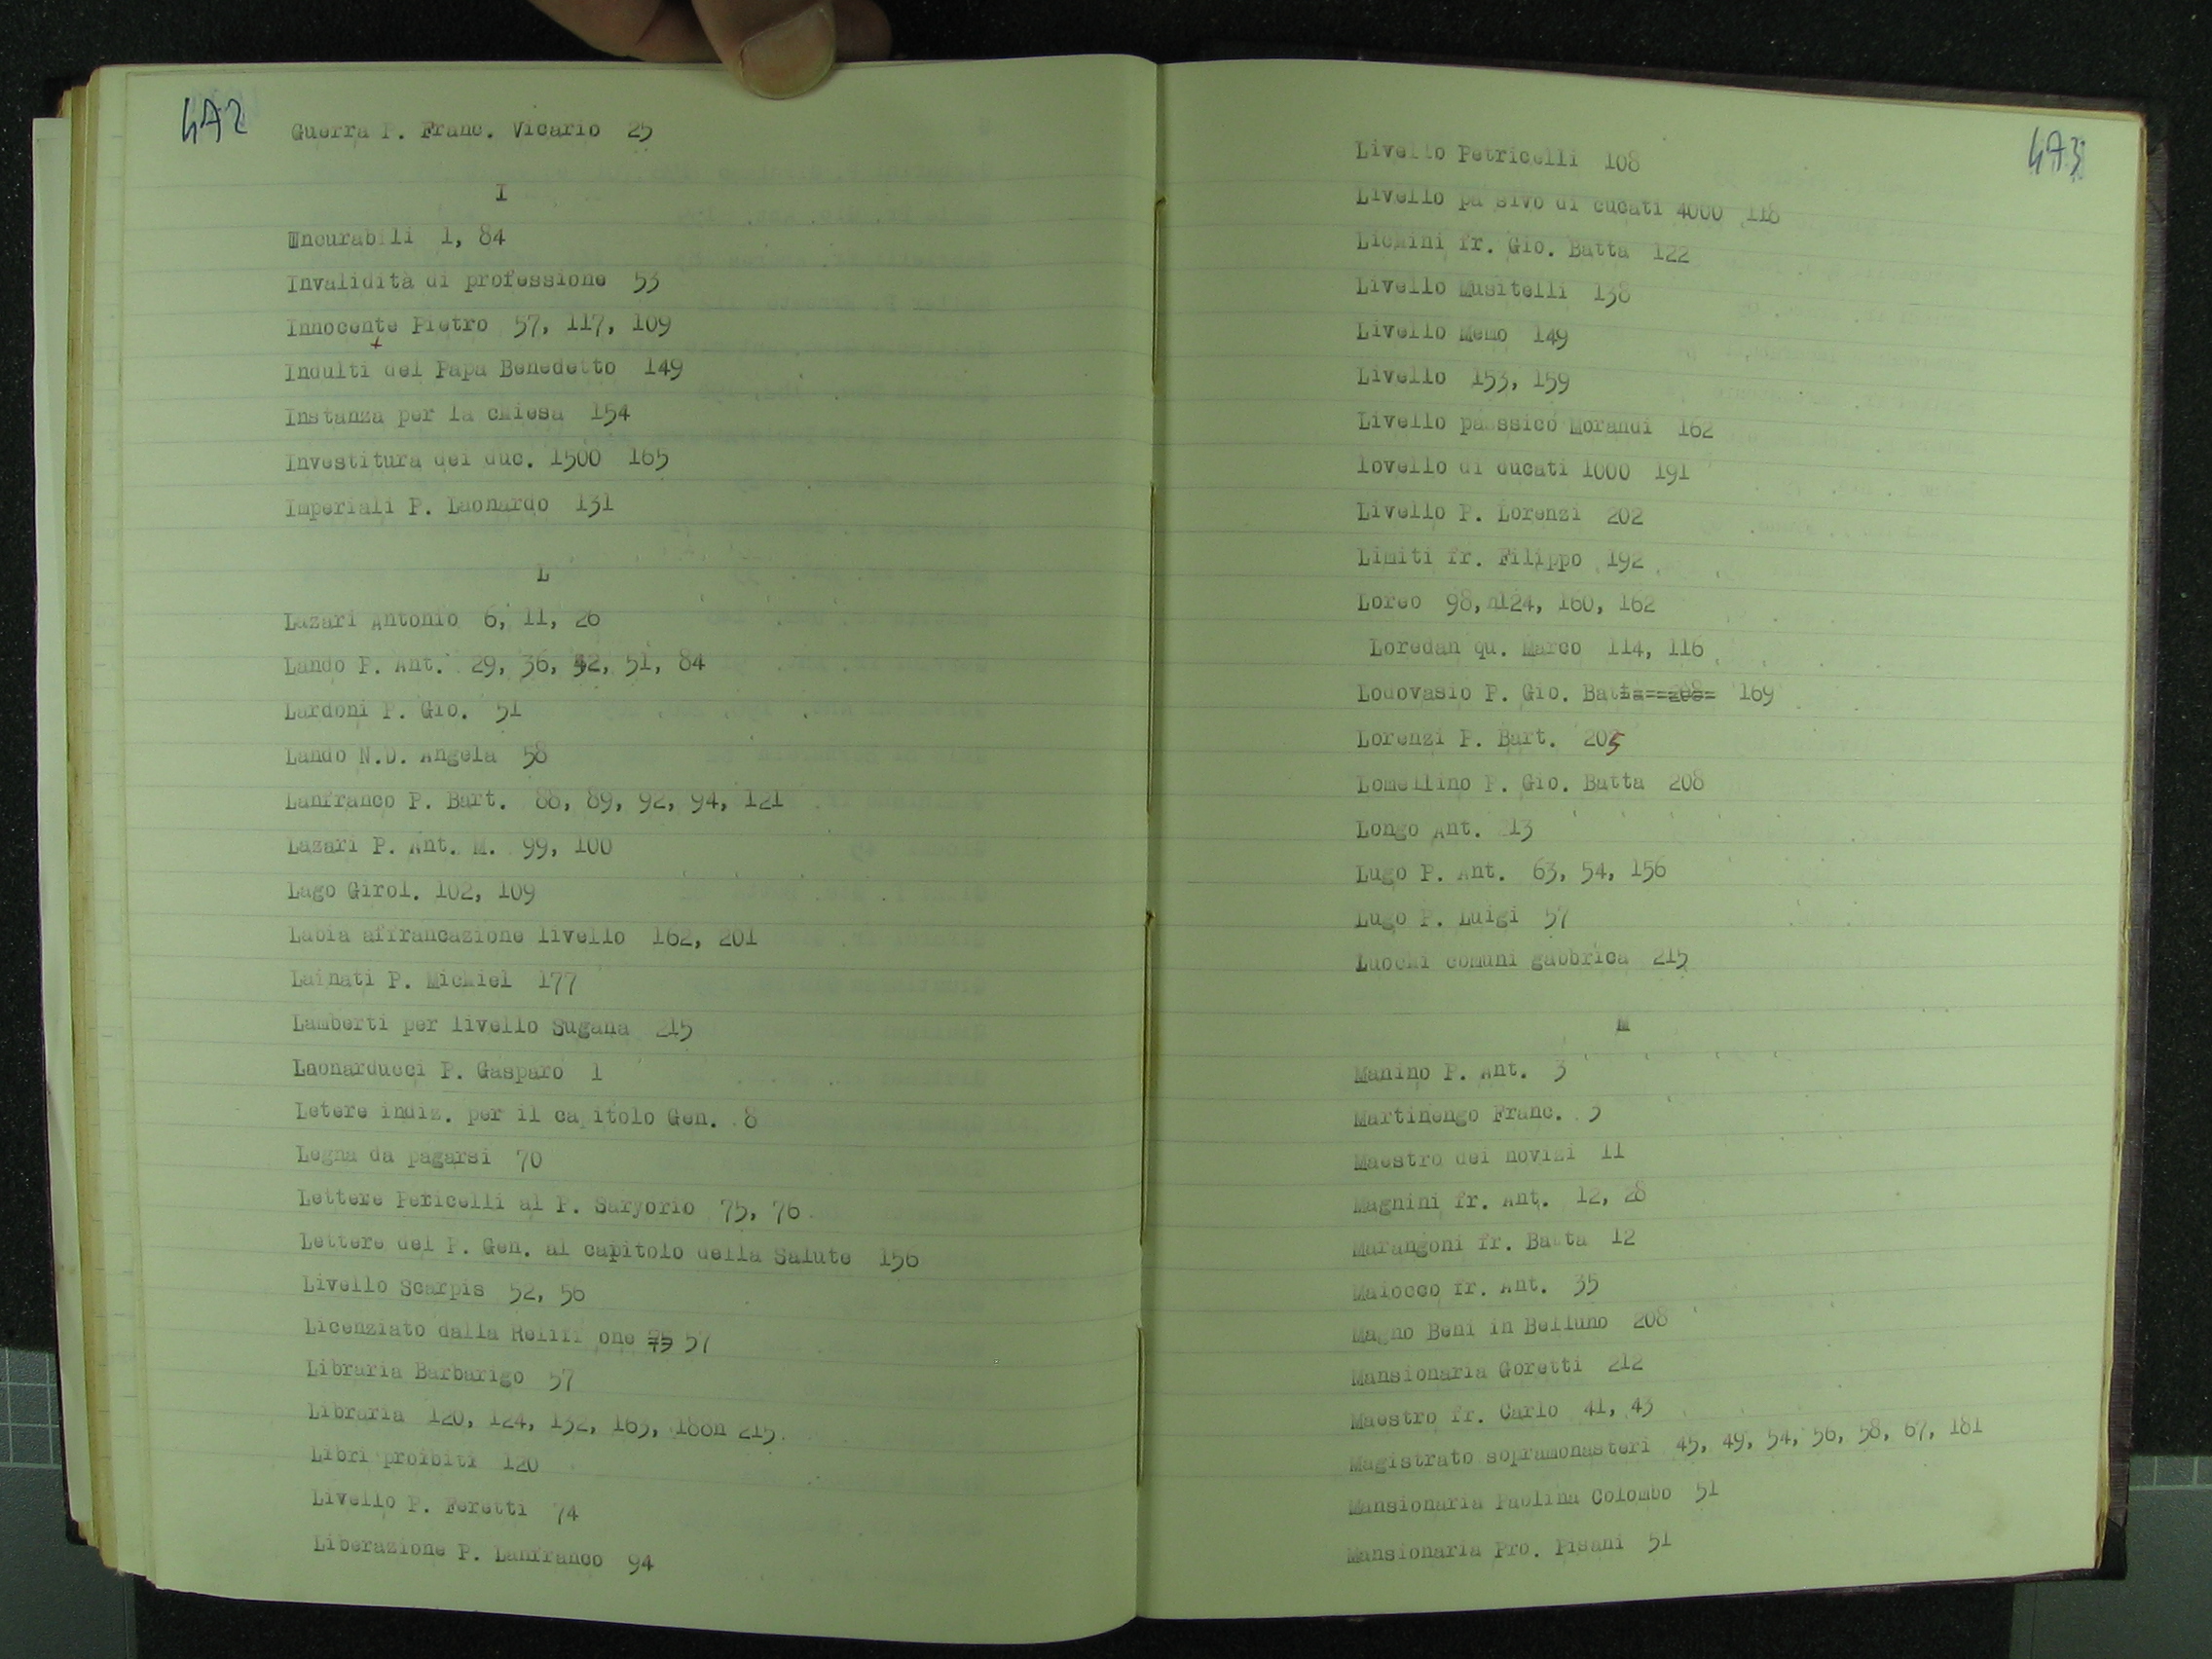 472
Guerra P. Franc. Vicario 25
I
Incurabili 1, 84
Invalidità di professione 53
Innocente Pietro 57, 117, 109
Indulti del Papa Benedetto 149
Instanza per la chiesa 154
Investitura dei duc. 1500 165
Imperiali P. Laonardo 131
L
Lazari Antonio 6, 11, 26
Lando P. Ant. 29, 36, 42, 51, 84
Lardoni P. Gio. 51
Lando N.D. Angela 58
Lanfranco P. Bart. 88, 89, 92, 94, 121
Lazari P. Ant. M. 99, 100
Lago Girol. 102, 109
Labia affrancazione livello 162, 201
Lainati P. Michiel 177
Lamberti per livello Sugana 215
Laonarducci P. Gasparo 1
Letere indiz. per il ca itolo Gen. 8
Legna da pagarsi 70
Lettere Pericelli al P. Saryorio 75, 76
Lettere del P. Gen. al capitolo della Salute 156
Livello Scarpis 52, 56
Licenziato dalla Relifi one 57
Libraria Barbarigo 57
Libraria 120, 124, 132, 163, 188n 215
Libri proibiti 120
Livello P. Feretti 74
Liberazione P. Lanfranco 94
473
Livello Petricelli 108
Livello pa sivo di cucati 4000 118
Lichini fr. Gio. Batta 122
Livello Musitelli 138
Livello Memo 149
Livello 153, 159
Livello passico Morandi 162
lovello di ducati 1000 191
Livello P. Lorenzi 202
Limiti fr. Filippo 192
Loreo 98, n124, 160, 162
Loredan qu. Marco 114, 116
Lodovasio P. Gio. Batta 208 169
Lorenzi P. Bart. 205
Lomellino P. Gio. Batta 208
Longo Ant. 213
Lugo P. Ant. 63, 54, 156
Lugo P. Luigi 57
Luochi comuni gabbrica 215
M
Manino P. Ant. 3
Martinengo Franc. 3
Maestro dei novizi 11
Magnini fr. Ant. 12, 28
Marangoni fr. Batta 12
Maiocco fr. Ant. 35
Magno Beni in Belluno 208
Mansionaria Goretti 212
Maestro fr. Carlo 41, 43
Magistrato sopramonasteri 45, 49, 54, 56, 58, 67, 181
Mansionaria Paolina Colombo 51
Mansionaria Pro. Pisani 51